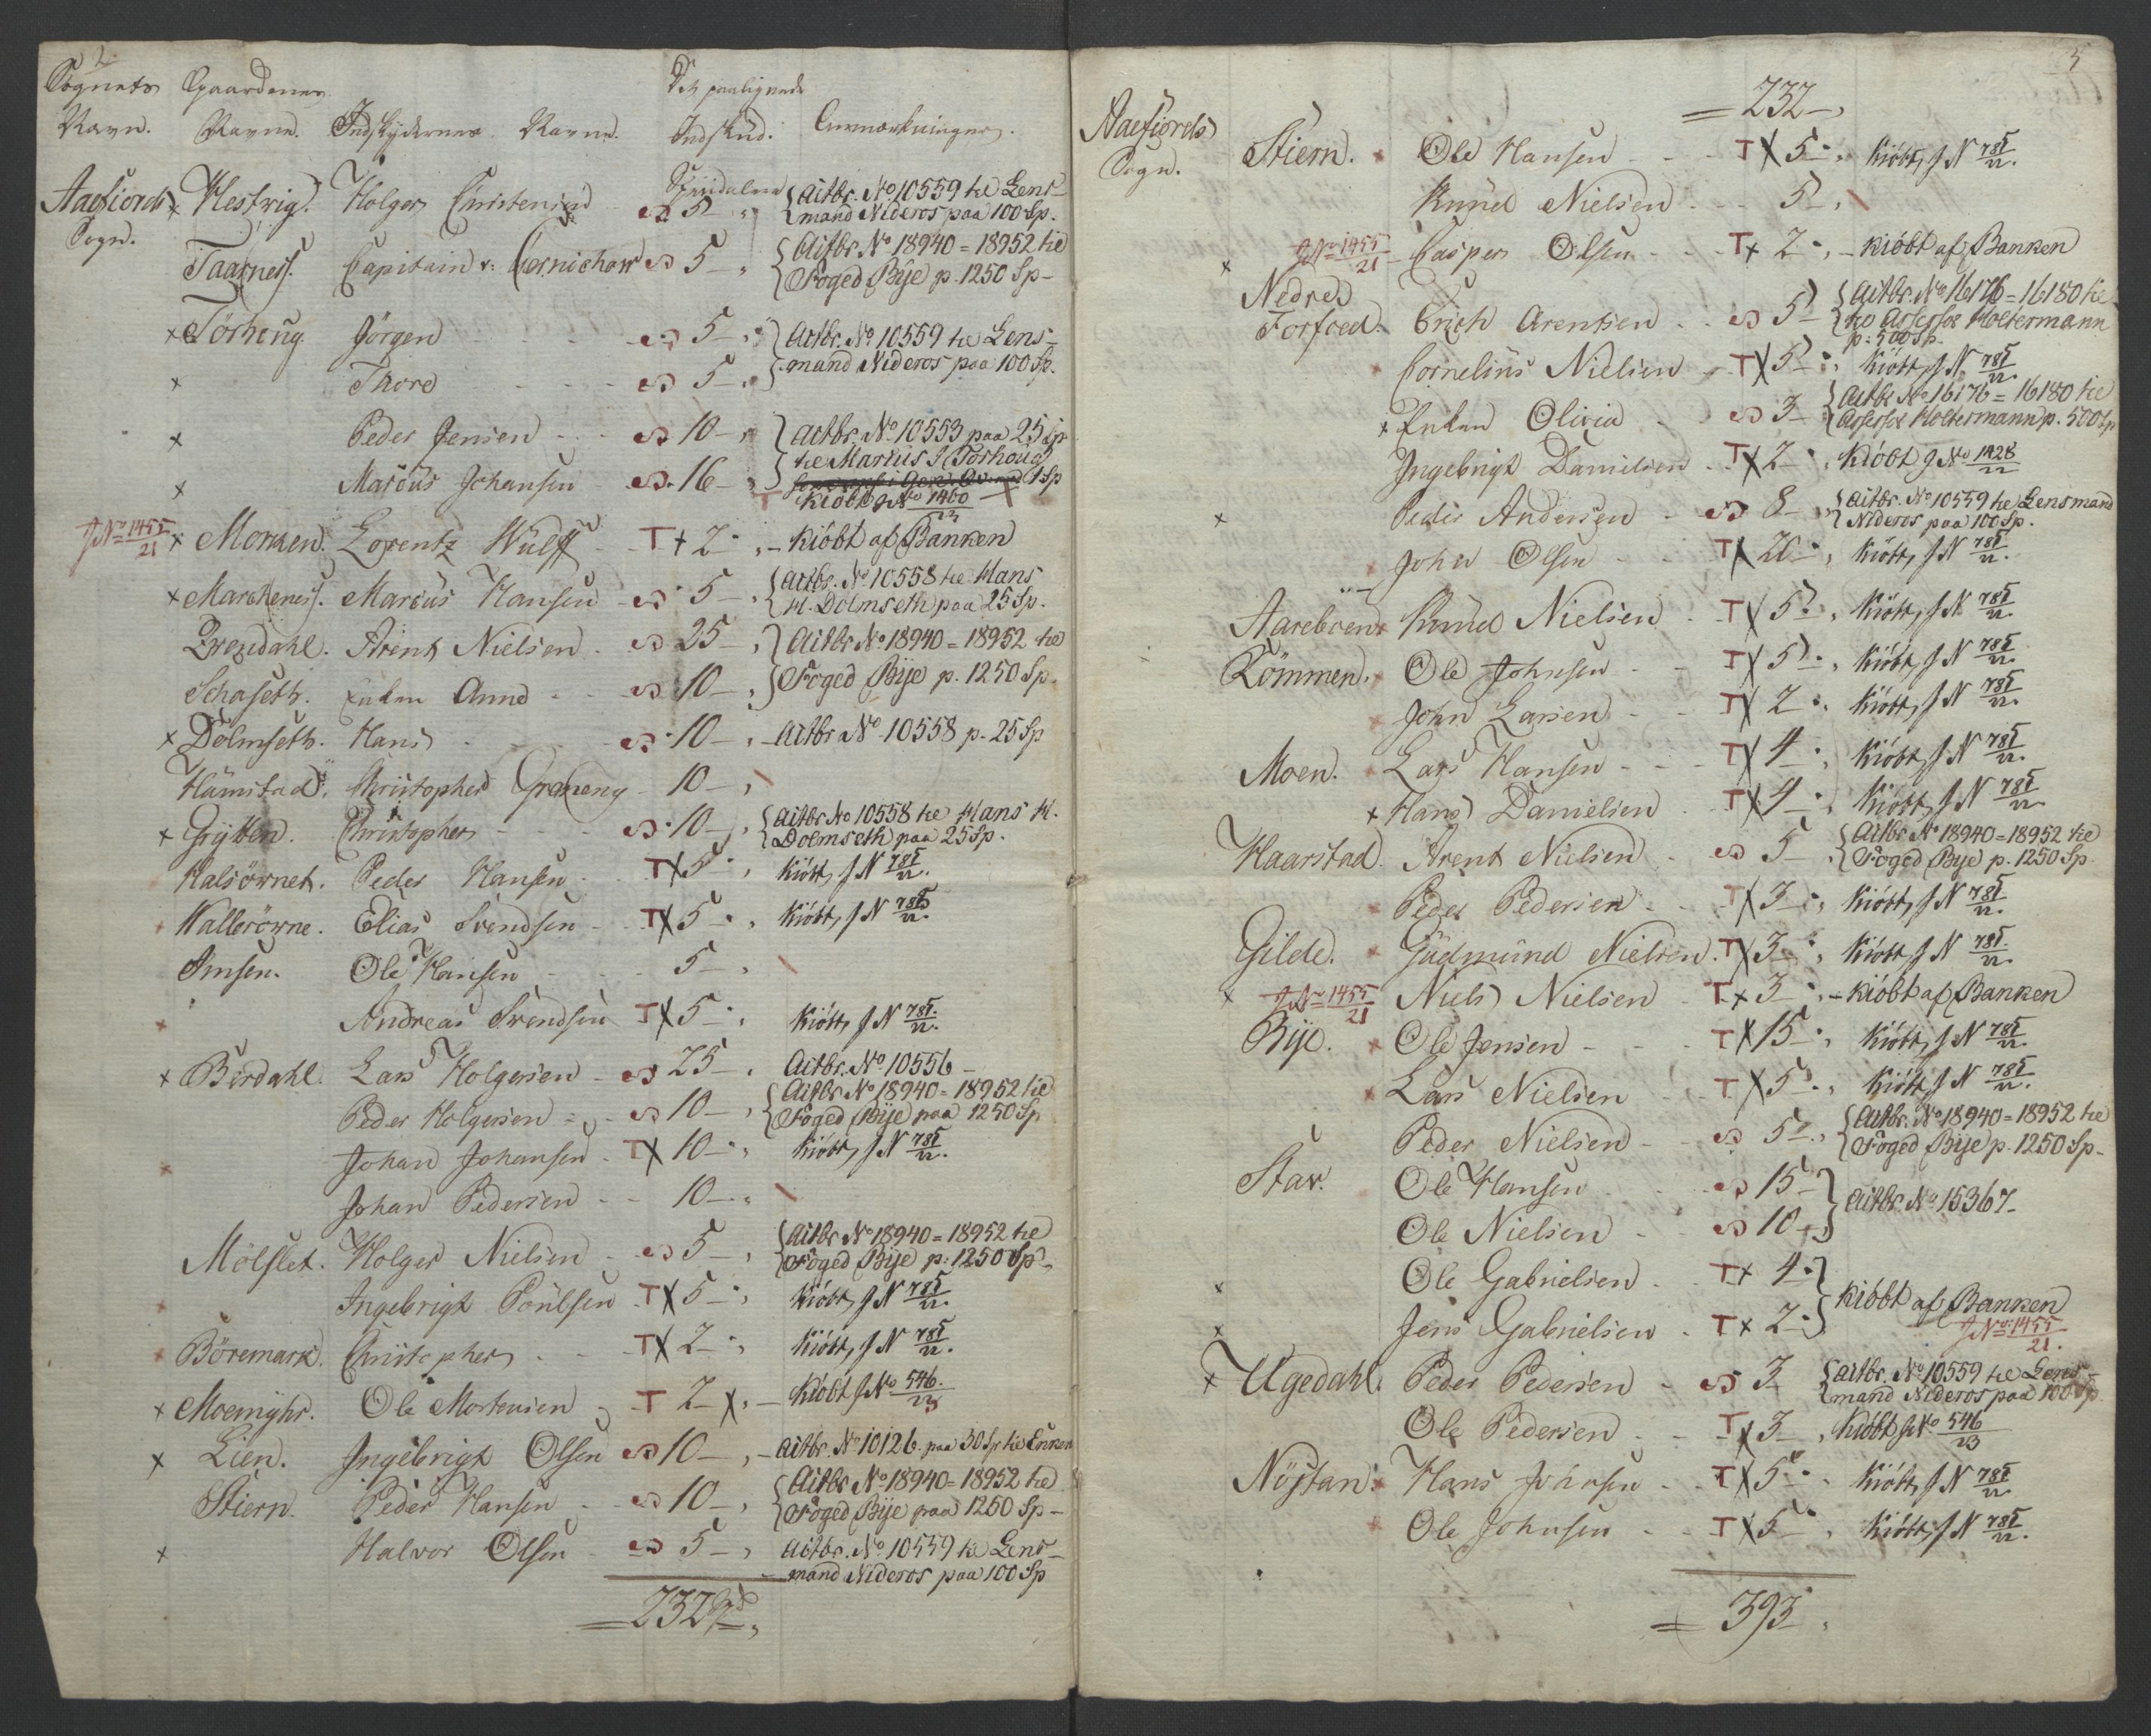 2.
Sognets Gaardenes Det paalignede
Navn. Navne. Indskydernes Navne. Indskud. Anmærkninger.
Aaefiords Sogn.
Spesidaler
x Hestvig. Holger Christensen 5 - { Actbr. No 10559 til Lens-
mand Nideros paa 100 Sp.
Taarness. Capitain v: 5 - { Actbr. No 18940 = 18952 til
Foged Bye p. 1250 Sp -
x Törhoug. Jörgen 5 - } Actbr. No 10559 til Lens-
x Thore 5 - } mand Nideros paa 100 Sp.
x Peder Jensen 10 - } Actbr. No 10553 paa 25 Sp
til Marcus J Törhoug
x Marcus Johansen 16 - 1 Sp
Kiöbt J No 1460/23
J No 1455/21 x Morken. Lorentz Wulff T x 2 - Kiöbt af Banken
x Marckeness. Marcus Hansen 5 - { Actbr. No 10558 til Hans
H. Dolmseth paa 25 Sp.
Qvendahl. Arent Nielsen 25 - } Actbr No 18940 = 18952 til
Schaseth. Enken Anne 10 - } Foged Bye p. 1250 Sp.
x Dolmseth. Hans 10 - Actbr No 10558 p. 25 Sp
Humstad. Christopher Grøneng 10 -
x Grytten. Christopher 10 - { Actbr No 10558 til Hans H.
Dolmseth paa 25 Sp.
Halsörnet. Peder Hansen T x 5 - Kiöbt, J N 781/22.
Nallerörne. Elias Svendsen T x 5 - Kiöbt, J N 781/22.
Imsen. Ole Hansen 5 -
Andreas Svendsen T x 5 - Kiöbt, J N 781/22.
x Berdahl. Lars Holgersen 25 - Actbr. No 10556 -
Peder Holgersen 10 - { Actbr No 18940 = 18952 til
Foged Bye paa 1250 Sp
Johan Johansen T x 10 - Kiöbt, J N 781/22.
Johan Pedersen 10 -
Mölslet. Holger Nielsen 5 - { Actbr No 18940 = 18952 til
Foged Bye p: 1250 Sp -
Ingebrigt Poulsen T x 5 - Kiöbt, J N 781/22.
Böremark. Christopher T x 2 - Kiöbt, J N 781/22.
x Moemyhr. Ole Mortensen T 2 - x - Kiöbt J No 546/23
x Lien. Ingebrigt Olsen 10 - Actbr. No 10126 paa 30 Sp til Enken
Stiern. Peder Hansen 10 - { Actbr No 18940 = 18952 til
Foged Bye paa 1250 Sp -
x Halvor Olsen 5 - Actbr. No 10559 til Lens-
mand Nideros paa 100 Sp
= 232
5
= 232 -
Aaefiords Sogn.
Stiern. Ole Hansen T x 5 - Kiöbt, J N 781/22.
Knud Nielsen 5 -
x J No 1455/21 Casper Olsen T x 2 - Kiöbt af Banken
Nedre Forfoed. Erich Arentsen 5 - { Actbr. No 16176 = 16180 til
Assessor Holtermann
p: 500 Sp.
Cornelius Nielsen T x 5 - Kiöbt, J N 781/22.
x Enken Olivia 3 - { Actbr No 16176 = 16180 til
Assessor Holtermann p. 500 Sp
Ingebrigt Danielsen T x 2 - Kiöbt J No 1428/22
x Peder Andersen 8 - { Actbr. No 10559 til Lensmand
Nideros paa 100 Sp.
John Olsen T x 20 - Kiöbt, J N 781/22.
Aareboen Knud Nielsen T x 5 - Kiöbt, J N 781/22.
Römmen. Ole Johnsen T x 5 - Kiöbt, J N 781/22.
John Larsen T x 2 - Kiöbt, J N 781/22.
Moen. Lars Hansen T x 4 - Kiöbt, J N 781/22.
x Hans Danielsen T x 4 - Kiöbt, J N 781/22.
Haarstad. Arent Nielsen 5 - { Actbr No 18940 = 18952 til
Foged Bye p. 1250 Sp
Peder Pedersen T x 3 - Kiöbt, J N 781/22.
Gilde. Gudmund Nielsen T x 3 - Kiöbt, J N 781/22.
x J No 1455/21 Niels Nielsen T x 3 - Kiöbt af Banken
Bye. Ole Jensen T x 15 - Kiöbt, J N 781/22.
Lars Nielsen T x 5 - Kiöbt, J N 781/22.
Peder Nielsen 5 - { Actbr. No 18940 = 18952 til
Foged Bye p. 1250 Sp -
Stav. Ole Hansen 15 - } Actbr No 15367 -
Ole Nielsen 10 - }
x Ole Gabrielsen T x 4 - } Kiöbt af Banken
x Jens Gabrielsen T x 2 - } J No 1455/21.
x Ugedahl. Peder Pedersen 3 - { Actbr. No 10559 til Lens-
mand Nideros paa 100 Sp.
Ole Pedersen T x 3 - Kiöbt J No 546/23
Nöstan. Hans Johnsen T x 5 - Kiöbt, J N 781/22
Ole Johnsen T x 5 - Kiöbt, J N 781/22.
= 393 -